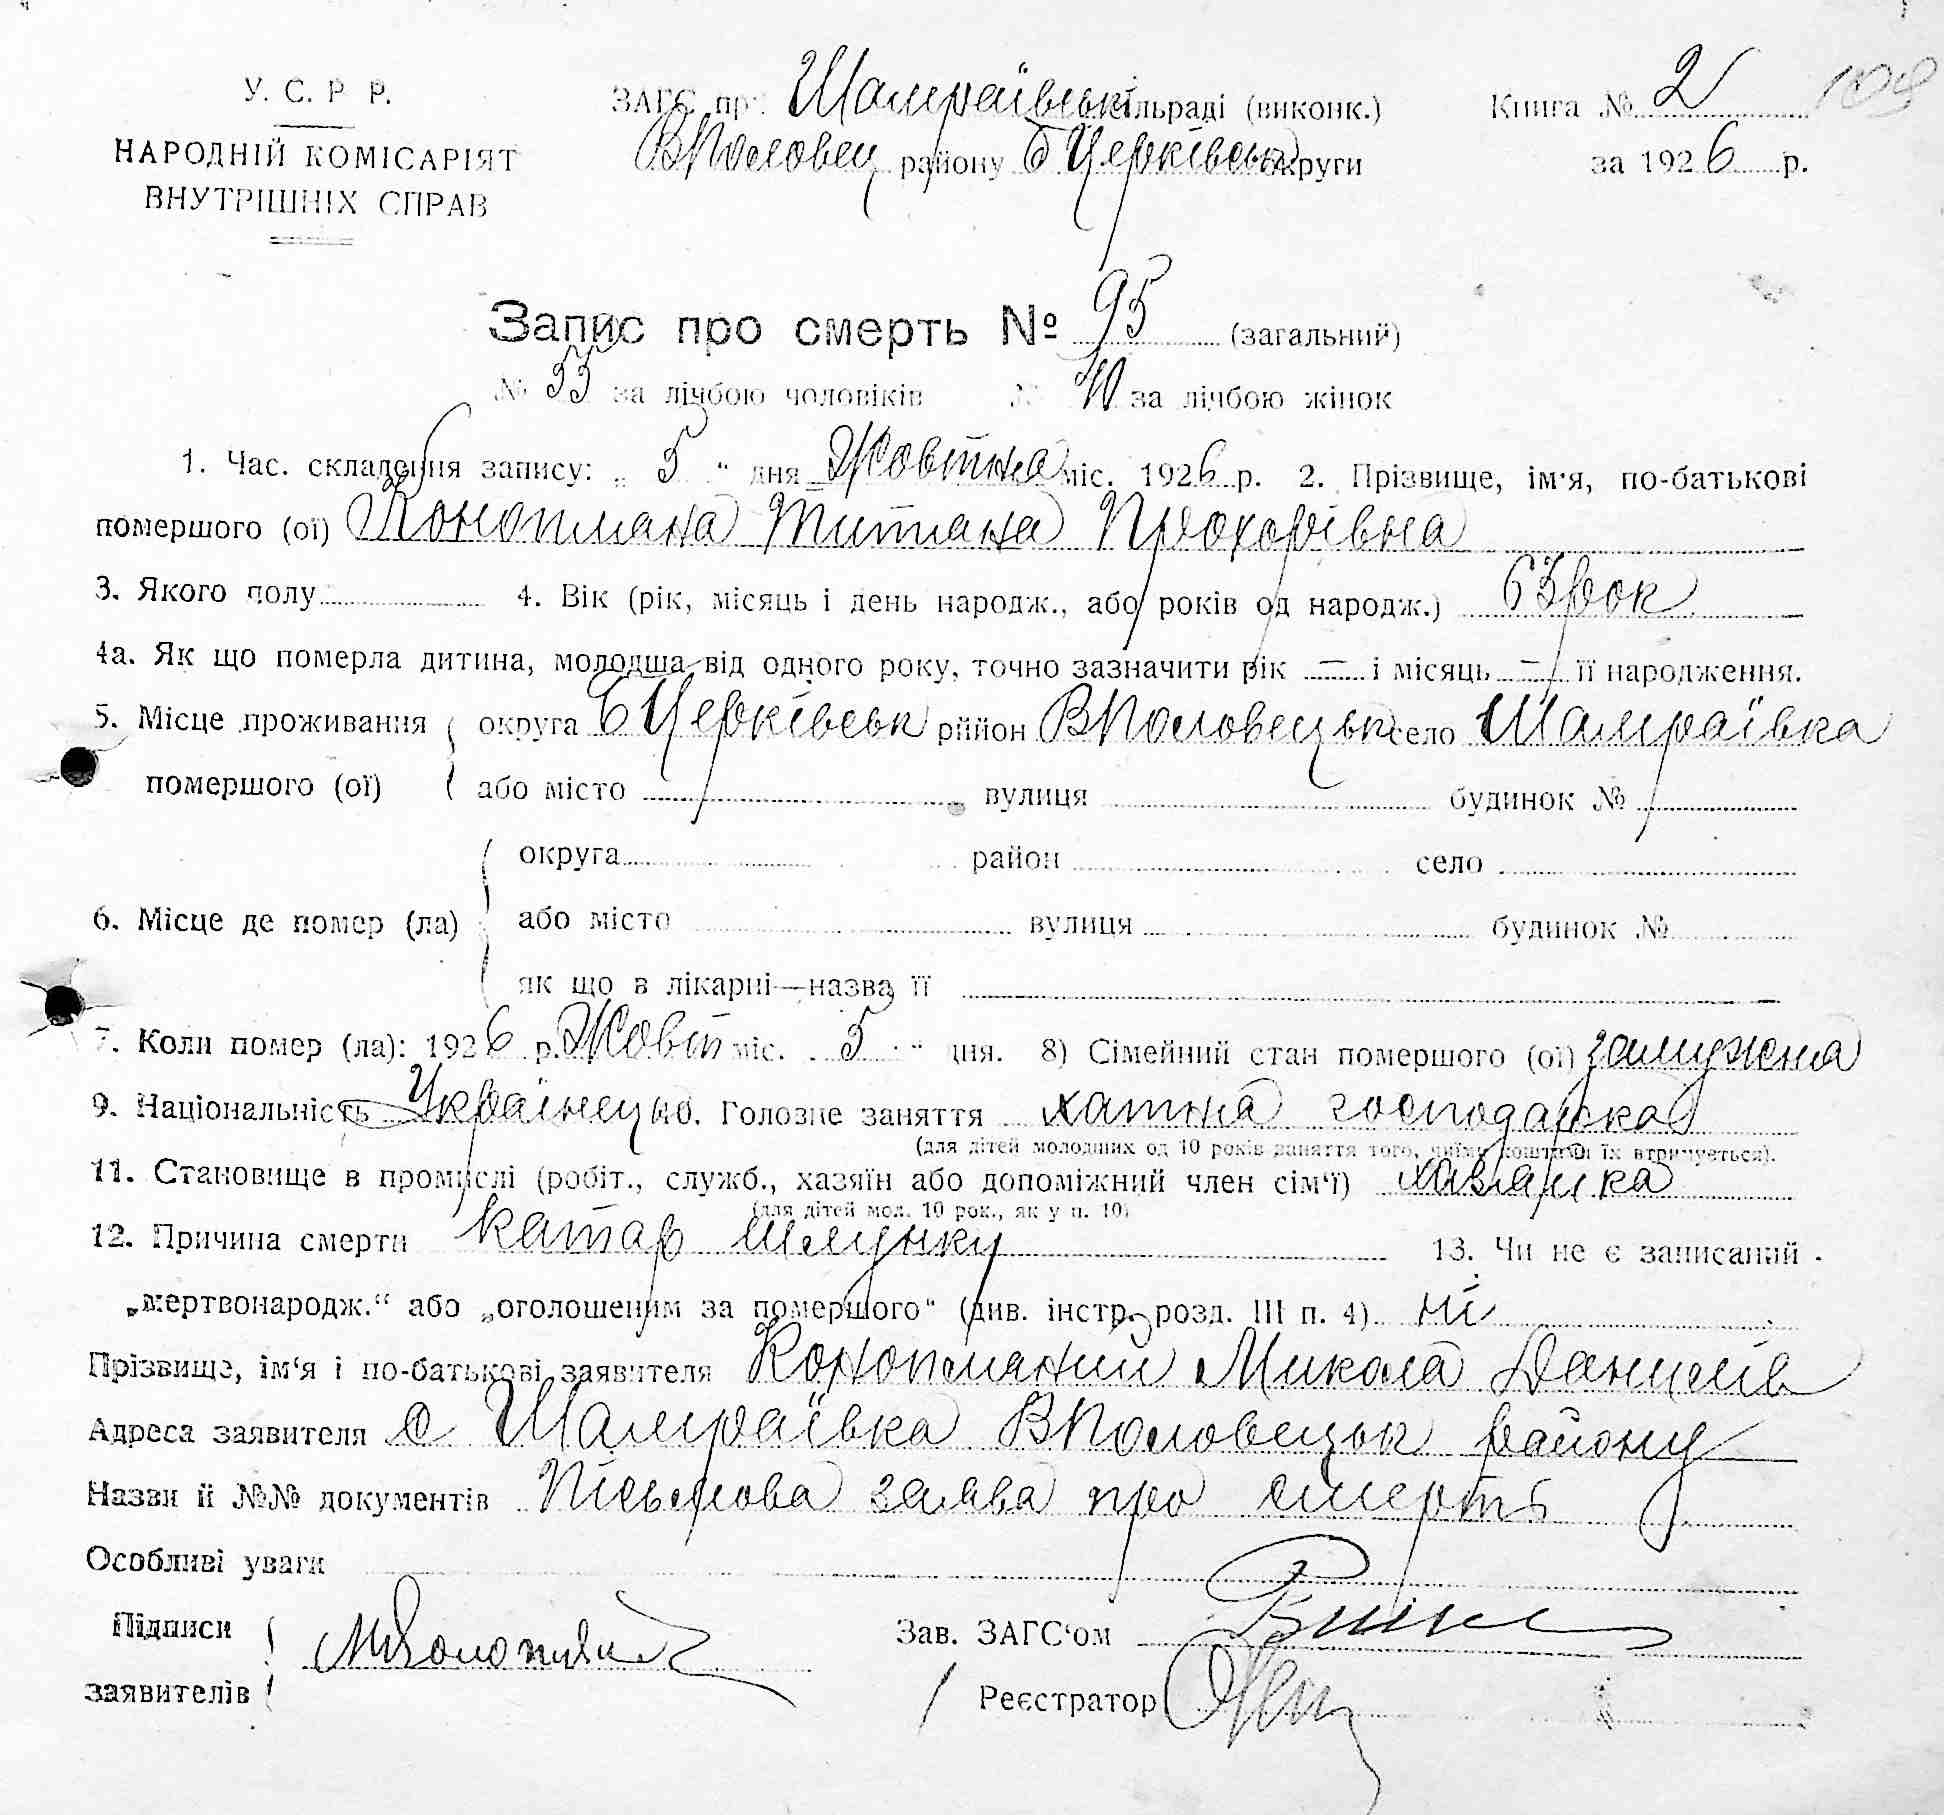 У. С. Р Р.
НАРОДНІЙ КОМІСАРІЯТ
ВНУТРІШНІХ СПРАВ
ЗАГС при Шамраївській сільраді (виконк.)
ВПоловец району БЦерківськ округи
Книга № 2 109
за 1926 р.
Запис про смерть № 95 (загальний)
№ 55 за лічбою чоловіків № 40 за лічбою жінок
1. Час. складення запису: „ 5 “ дня Жовтня міс. 1926 р. 2. Прізвище, ім'я, по-батькові
помершого (ої) Конопляна Титяна Прохорівна
3. Якого полу 4. Вік (рік, місяць і день народж., або років од народж.) 63 рок
4а. Як що померла дитина, молодша від одного року, точно зазначити рік — і місяць — її народження.
5. Місце проживання помершого (ої) округа БЦерківськ рййон ВПоловецьк село Шамраївка
або місто вулиця будинок №
6. Місце де помер (ла) округа район село
або місто вулиця будинок №
як що в лікарні—назва її
7. Коли помер (ла): 1926 р. Жовт міс. 5 “ дня. 8) Сімейний стан помершого (ої) замужня
9. Національність Українець 10. Головне заняття хатня господарка
(для дітей молодших од 10 років заняття того, чиїми коштами їх втримується).
11. Становище в промислі (робіт., служб., хазяїн або допоміжний член сім'ї) хазяйка
(для дітей мол. 10 рок., як у п. 10)
12. Причина смерти катар шлунку 13. Чи не є записаний
„мертвонародж.“ або „оголошеним за помершого“ (див. інстр. розд. III п. 4) ні
Прізвище, ім'я і по-батькові заявителя Конопляний Микола Данилів
Адреса заявителя С Шамраївка ВПоловецьк району
Назви й №№ документів Письмова заява про смерть
Особливі уваги
Підписи
заявителів
Зав. ЗАГС'ом
Реєстратор